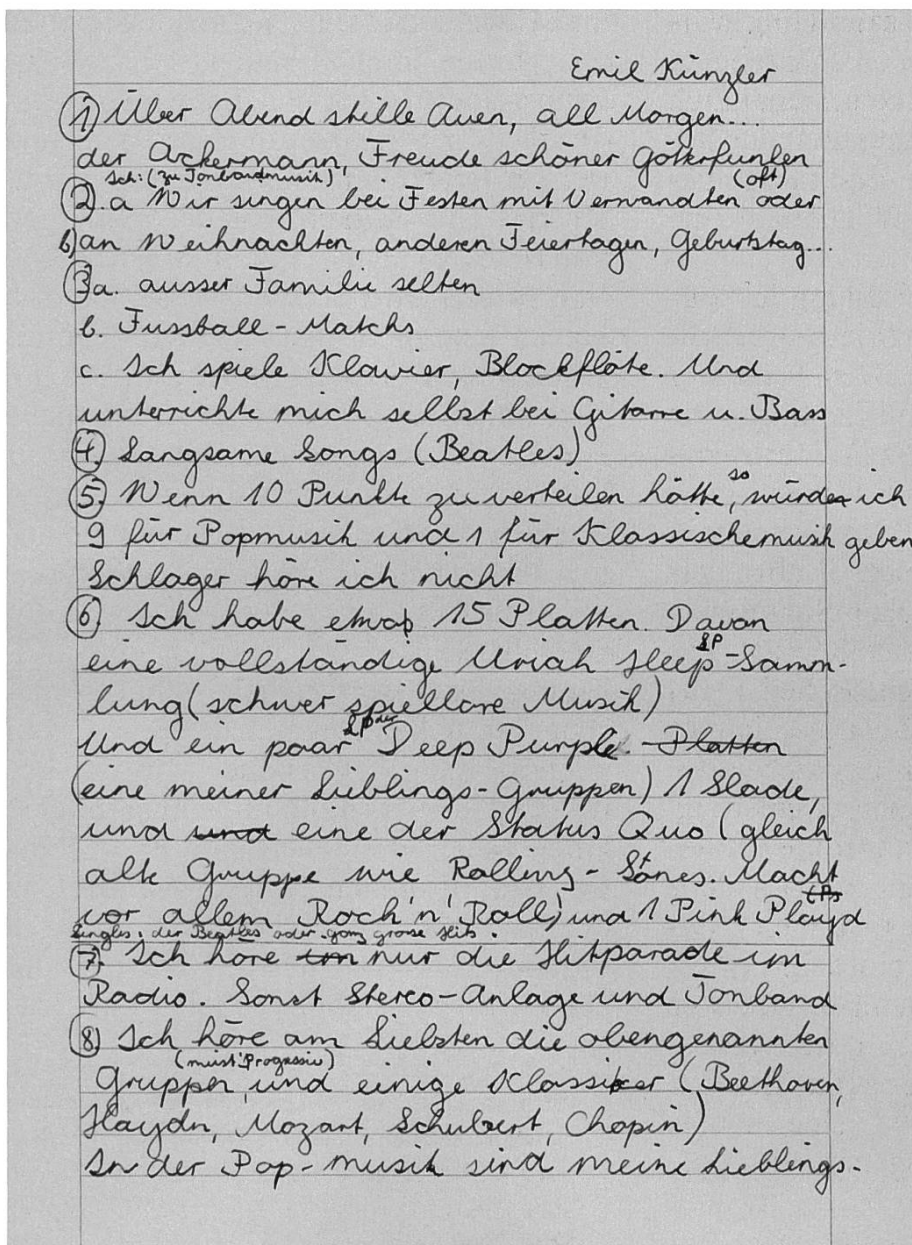 Emil Künzler
① Über Abend stille Auen, all Morgen...
der Ackermann, Freude schöner Götterfunken
Ich: (zu Tonbandmusik) (oft)
② a Wir singen bei Festen mit Verwandten oder
b) an Weihnachten, anderen Feiertagen, Geburtstag...
③ a. ausser Familie selten
b. Fussball-Matchs
c. Ich spiele Klavier, Blockflöte. Und
unterrichte mich selbst bei Gitarre u. Bass
④ Langsame Songs (Beatles)
⑤ Wenn 10 Punkte zu verteilen hätte, so würde ich
9 für Popmusik und 1 für Klassischemusik geben
Schlager höre ich nicht
⑥ Ich habe etwa 15 Platten. Davon
eine vollständige Uriah Heep LP-Samm-
lung (schwer spielbare Musik)
Und ein paar LP der Deep Purple. Platten
(eine meiner Lieblings-Gruppen) 1 Slade,
und und eine der Status Quo (gleich
alte Gruppe wie Rolling-Stones. Macht
vor allem Rock'n'Roll) und 1 Pink Floyd LPs
Singles: der Beatles oder ganz grosse Hits.
⑦ Ich höre im nur die Hitparade im
Radio. Sonst Stereo-Anlage und Tonband
⑧ Ich höre am Liebsten die obengenannten
(meist Progessiv)
Gruppen, und einige Klassiker (Beethoven,
Haydn, Mozart, Schubert, Chopin)
In der Pop-musik sind meine Lieblings-